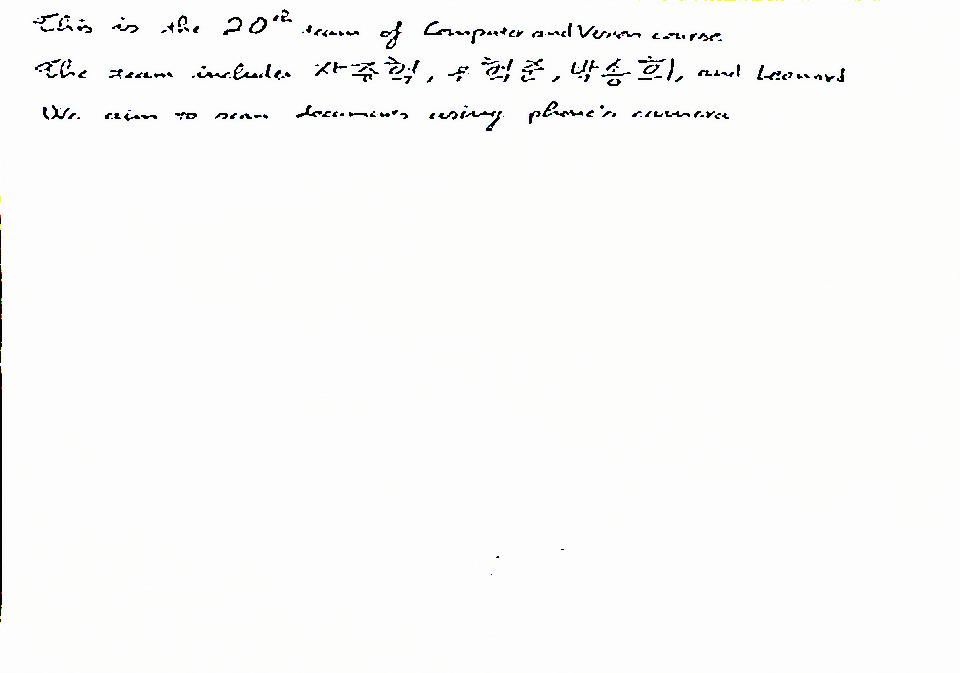 This is the 20th team of Computer and Vision course.
The team includes 차주혁, 우현준, 박승희, and Leonard
We aim to scan documents using phone's camera